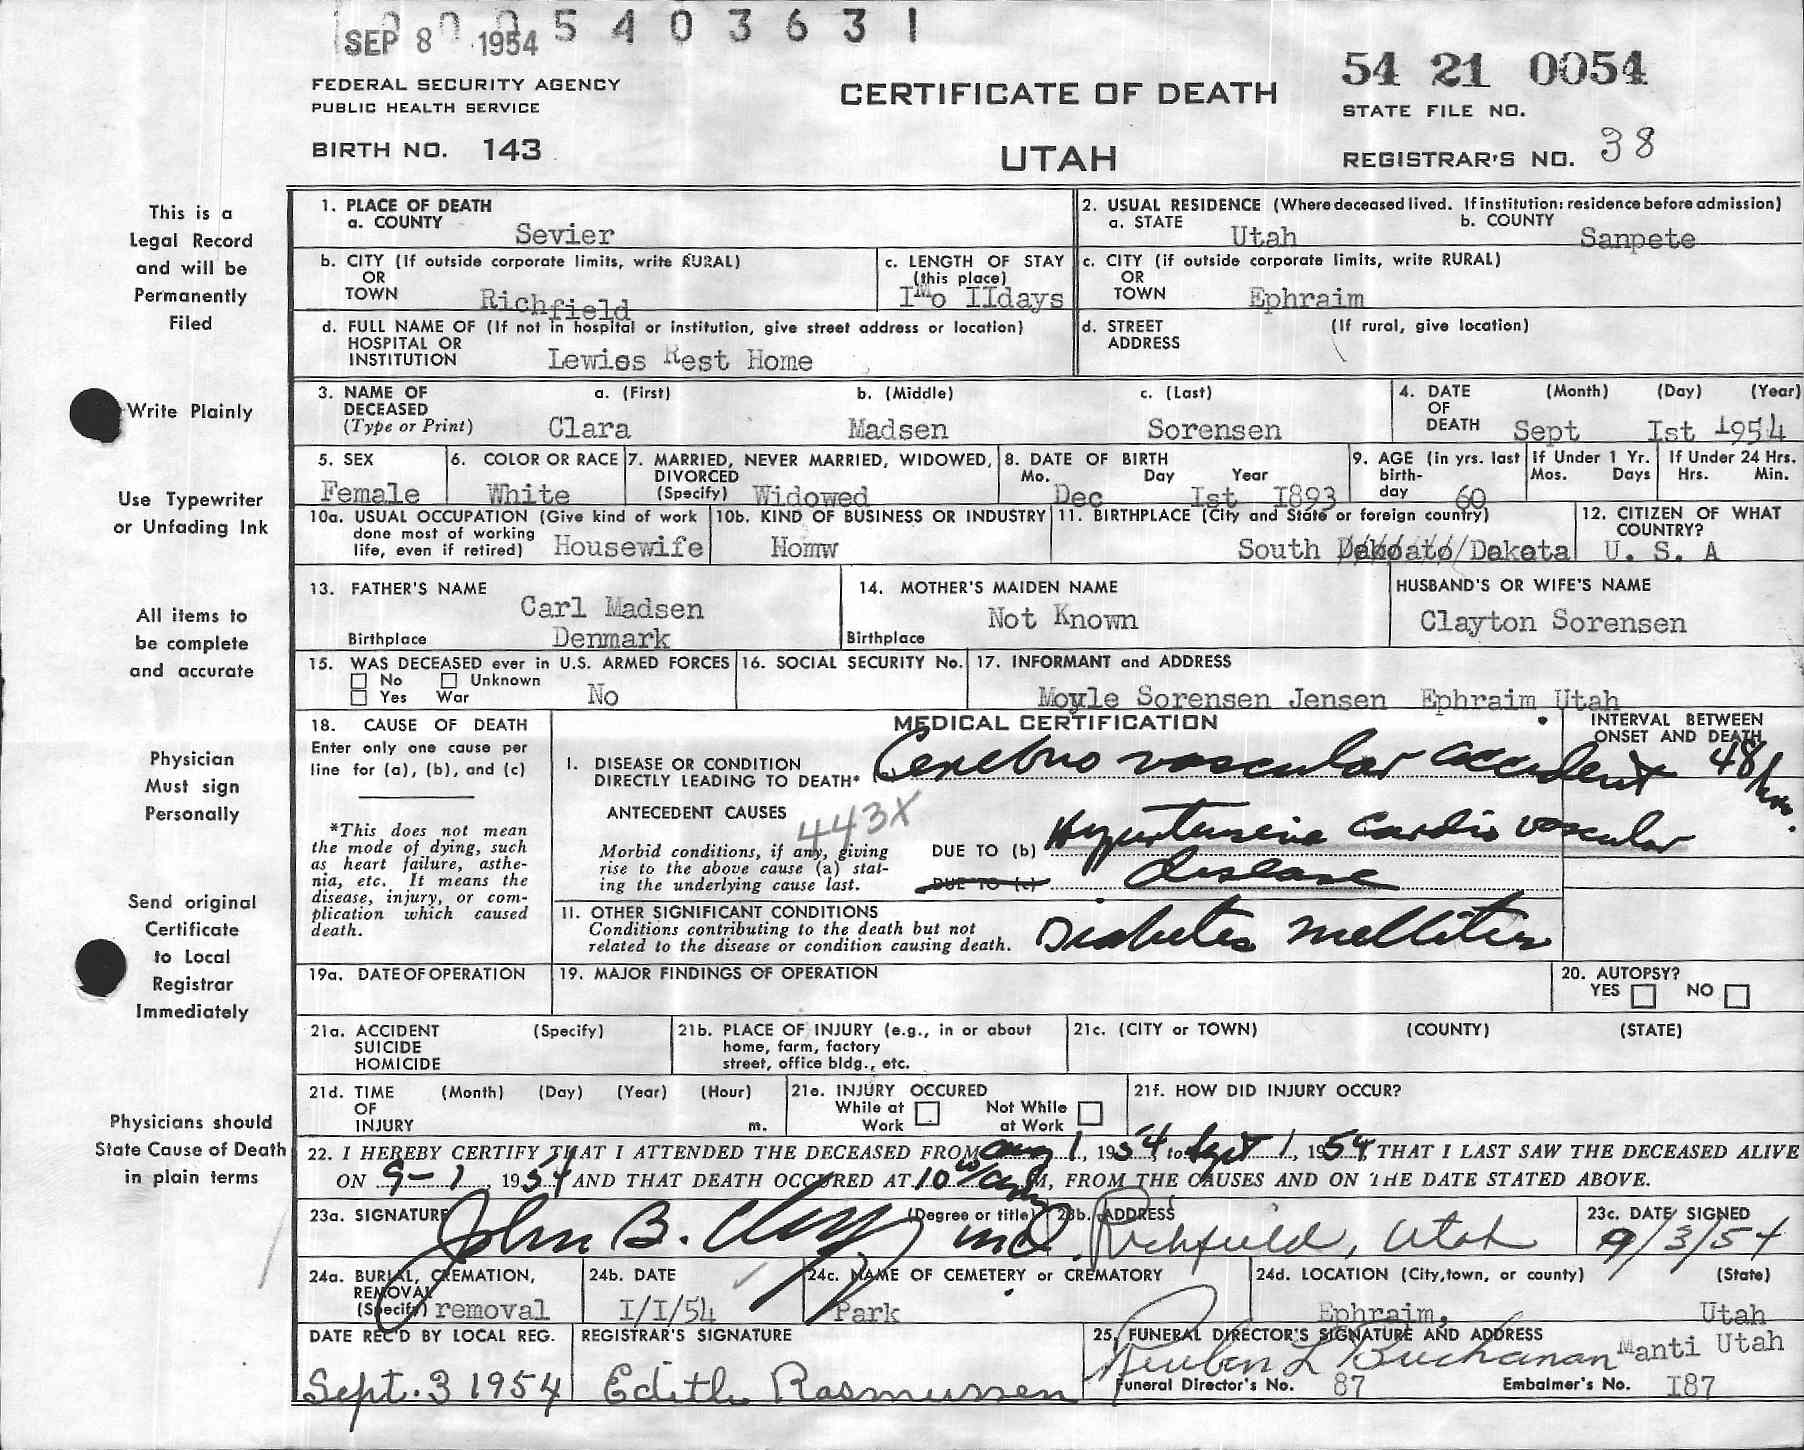 SEP 8 1954 5 4 0 3 6 3 1
FEDERAL SECURITY AGENCY
PUBLIC HEALTH SERVICE
BIRTH NO. 143
CERTIFICATE OF DEATH
UTAH
54 21 0054
STATE FILE NO.
REGISTRAR'S NO. 38
This is a
Legal Record
and will be
Permanently
Filed
Write Plainly
Use Typewriter
or Unfading Ink
All items to
be complete
and accurate
Physician
Must sign
Personally
Send original
Certificate
to Local
Registrar
Immediately
Physicians should
State Cause of Death
in plain terms
1. PLACE OF DEATH
a. COUNTY Sevier
2. USUAL RESIDENCE (Where deceased lived. If institution: residence before admission)
a. STATE Utah b. COUNTY Sanpete
b. CITY (If outside corporate limits, write RURAL)
OR
TOWN Richfield
c. LENGTH OF STAY
(this place)
I Mo IIdays
c. CITY (if outside corporate limits, write RURAL)
OR
TOWN Ephraim
d. FULL NAME OF (If not in hospital or institution, give street address or location)
HOSPITAL OR
INSTITUTION Lewiss Rest Home
d. STREET (If rural, give location)
ADDRESS
3. NAME OF a. (First) b. (Middle) c. (Last)
DECEASED
(Type or Print) Clara Madsen Sorensen
4. DATE (Month) (Day) (Year)
OF
DEATH Sept Ist 1954
5. SEX
Female
6. COLOR OR RACE
White
7. MARRIED, NEVER MARRIED, WIDOWED,
DIVORCED
(Specify) Widowed
8. DATE OF BIRTH
Mo. Day Year
Dec Ist I893
9. AGE (in yrs. last
birth-
day 60
If Under 1 Yr.
Mos. Days
If Under 24 Hrs.
Hrs. Min.
10a. USUAL OCCUPATION (Give kind of work
done most of working
life, even if retired) Housewife
10b. KIND OF BUSINESS OR INDUSTRY
Homw
11. BIRTHPLACE (City and State or foreign country)
South Dakota
12. CITIZEN OF WHAT
COUNTRY?
U. S. A
13. FATHER'S NAME
Carl Madsen
Birthplace Denmark
14. MOTHER'S MAIDEN NAME
Not Known
Birthplace
HUSBAND'S OR WIFE'S NAME
Clayton Sorensen
15. WAS DECEASED ever in U.S. ARMED FORCES
No Unknown
Yes War No
16. SOCIAL SECURITY No.
17. INFORMANT and ADDRESS
Moyle Sorensen Jensen Ephraim Utah
18. CAUSE OF DEATH
Enter only one cause per
line for (a), (b), and (c)
*This does not mean
the mode of dying, such
as heart failure, asthe-
nia, etc. It means the
disease, injury, or com-
plication which caused
death.
MEDICAL CERTIFICATION
INTERVAL BETWEEN
ONSET AND DEATH
I. DISEASE OR CONDITION
DIRECTLY LEADING TO DEATH* Cerebro vascular accident 48 hrs.
ANTECEDENT CAUSES
443X
Morbid conditions, if any, giving
rise to the above cause (a) stat-
ing the underlying cause last.
DUE TO (b) Hypertensive cardio vascular
DUE TO (c) disease
II. OTHER SIGNIFICANT CONDITIONS
Conditions contributing to the death but not
related to the disease or condition causing death. Diabetes mellitus
19a. DATE OF OPERATION
19. MAJOR FINDINGS OF OPERATION
20. AUTOPSY?
YES NO
21a. ACCIDENT (Specify)
SUICIDE
HOMICIDE
21b. PLACE OF INJURY (e.g., in or about
home, farm, factory
street, office bldg., etc.
21c. (CITY or TOWN) (COUNTY) (STATE)
21d. TIME (Month) (Day) (Year) (Hour)
OF
INJURY m.
21e. INJURY OCCURED
While at Work Not While at Work
21f. HOW DID INJURY OCCUR?
22. I HEREBY CERTIFY THAT I ATTENDED THE DECEASED FROM Aug 1, 1954, to Sept 1, 1954, THAT I LAST SAW THE DECEASED ALIVE
ON 9-1, 1954 AND THAT DEATH OCCURED AT 10 M, FROM THE CAUSES AND ON THE DATE STATED ABOVE.
23a. SIGNATURE (Degree or title)
John B. M.D.
23b. ADDRESS
Richfield, Utah
23c. DATE SIGNED
9/3/54
24a. BURIAL, CREMATION,
REMOVAL
(Specify) removal
24b. DATE
I/I/54
24c. NAME OF CEMETERY or CREMATORY
Park
24d. LOCATION (City, town, or county) (State)
Ephraim, Utah
DATE REC'D BY LOCAL REG.
Sept. 3 1954
REGISTRAR'S SIGNATURE
Edith Rasmussen
25. FUNERAL DIRECTOR'S SIGNATURE AND ADDRESS
Reuben L Buchanan Manti Utah
Funeral Director's No. 87 Embalmer's No. I87